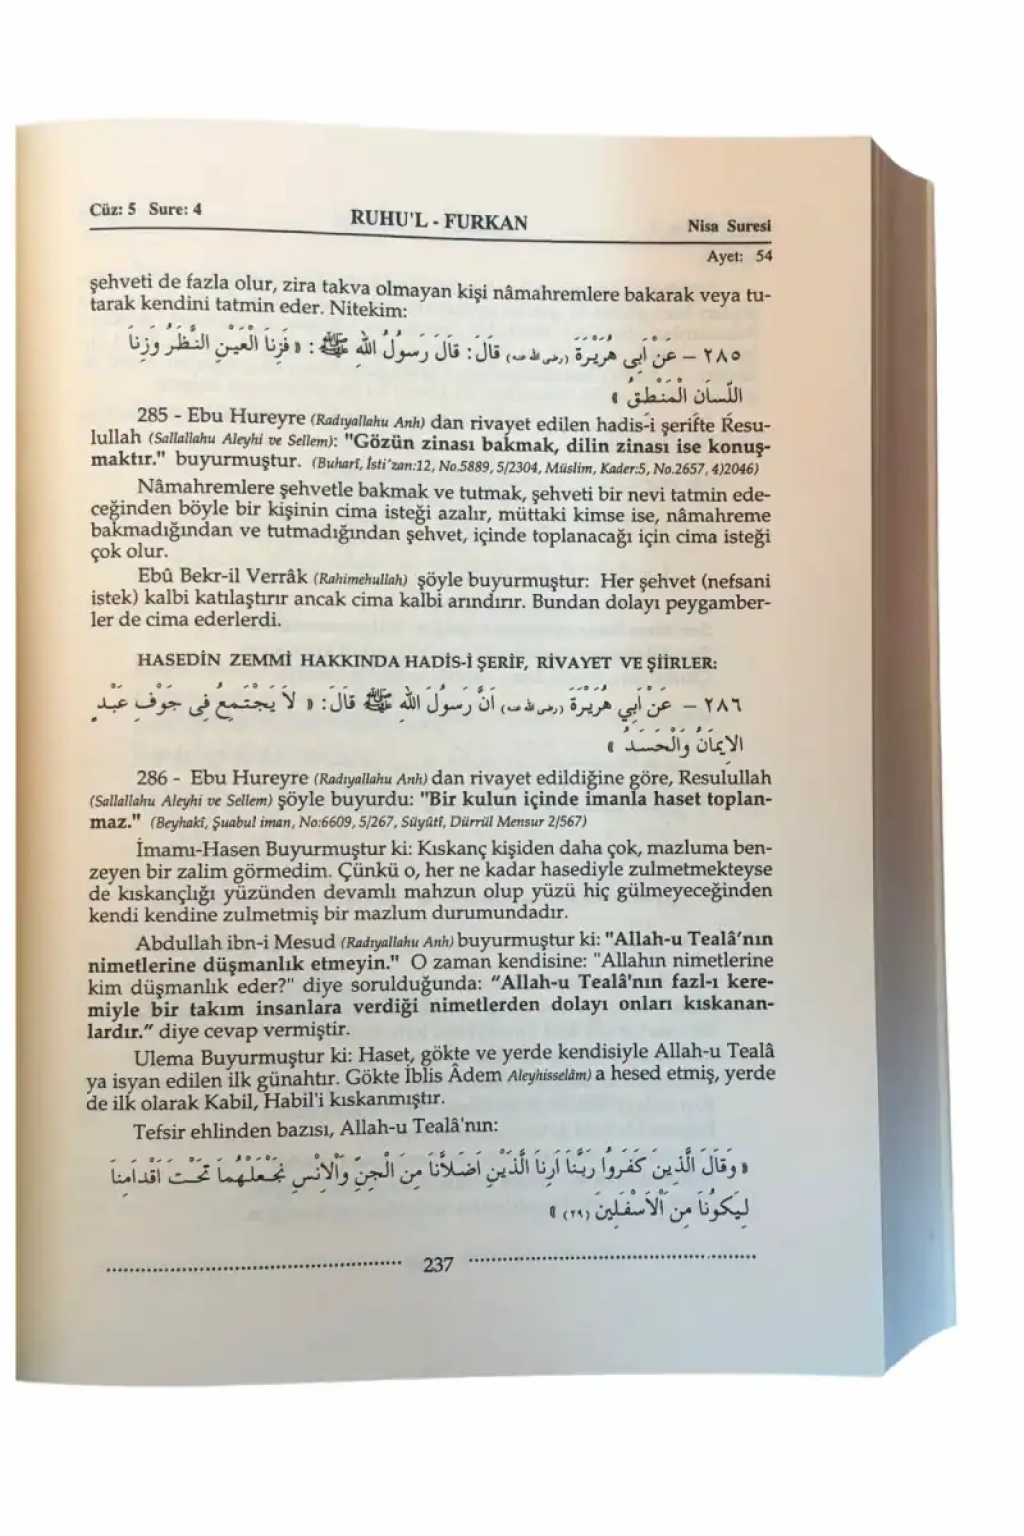 Cüz: 5 Sure: 4
RUHU'L - FURKAN
Nisa Suresi
Ayet: 54
şehveti de fazla olur, zira takva olmayan kişi nâmahremlere bakarak veya tu-
tarak kendini tatmin eder. Nitekim:
٢٨٥ – عَنْ اَبِى هُرَيْرَةَ (رضى الله عنه) قَالَ: قَالَ رَسُولُ اللهِ ﷺ: « فَزِنَا الْعَيْنِ النَّظَرُ وَزِنَا
اللِّسَانِ الْمَنْطِقُ »
285 - Ebu Hureyre (Radıyallahu Anh) dan rivayet edilen hadis-i şerifte Resu-
lullah (Sallallahu Aleyhi ve Sellem): "Gözün zinası bakmak, dilin zinası ise konuş-
maktır." buyurmuştur. (Buharî, İsti'zan:12, No.5889, 5/2304, Müslim, Kader:5, No.2657, 4)2046)
Nâmahremlere şehvetle bakmak ve tutmak, şehveti bir nevi tatmin ede-
ceğinden böyle bir kişinin cima isteği azalır, müttaki kimse ise, nâmahreme
bakmadığından ve tutmadığından şehvet, içinde toplanacağı için cima isteği
çok olur.
Ebû Bekr-il Verrâk (Rahimehullah) şöyle buyurmuştur: Her şehvet (nefsani
istek) kalbi katılaştırır ancak cima kalbi arındırır. Bundan dolayı peygamber-
ler de cima ederlerdi.
HASEDİN ZEMMİ HAKKINDA HADİS-İ ŞERİF, RİVAYET VE ŞİİRLER:
٢٨٦ – عَنْ اَبِي هُرَيْرَةَ (رضى الله عنه) اَنَّ رَسُولَ اللهِ ﷺ قَالَ: « لاَ يَجْتَمِعُ فِى جَوْفِ عَبْدٍ
الاِيمَانُ وَالْحَسَدُ »
286 - Ebu Hureyre (Radıyallahu Anh) dan rivayet edildiğine göre, Resulullah
(Sallallahu Aleyhi ve Sellem) şöyle buyurdu: "Bir kulun içinde imanla haset toplan-
maz." (Beyhakî, Şuabul iman, No:6609, 5/267, Süyûtî, Dürrül Mensur 2/567)
İmamı-Hasen Buyurmuştur ki: Kıskanç kişiden daha çok, mazluma ben-
zeyen bir zalim görmedim. Çünkü o, her ne kadar hasediyle zulmetmekteyse
de kıskançlığı yüzünden devamlı mahzun olup yüzü hiç gülmeyeceğinden
kendi kendine zulmetmiş bir mazlum durumundadır.
Abdullah ibn-i Mesud (Radıyallahu Anh) buyurmuştur ki: "Allah-u Tealâ'nın
nimetlerine düşmanlık etmeyin." O zaman kendisine: "Allahın nimetlerine
kim düşmanlık eder?" diye sorulduğunda: "Allah-u Tealâ'nın fazl-ı kere-
miyle bir takım insanlara verdiği nimetlerden dolayı onları kıskanan-
lardır." diye cevap vermiştir.
Ulema Buyurmuştur ki: Haset, gökte ve yerde kendisiyle Allah-u Tealâ
ya isyan edilen ilk günahtır. Gökte İblis Âdem Aleyhisselâm) a hesed etmiş, yerde
de ilk olarak Kabil, Habil'i kıskanmıştır.
Tefsir ehlinden bazısı, Allah-u Tealâ'nın:
« وَقَالَ الَّذِينَ كَفَرُوا رَبَّنَا اَرِنَا الَّذَيْنِ اَضَلاَّنَا مِنَ الْجِنِّ وَاْلاِنْسِ نَجْعَلْهُمَا تَحْتَ اَقْدَامِنَا
لِيَكُونَا مِنَ اْلاَسْفَلِينَ (٢٩) »
237